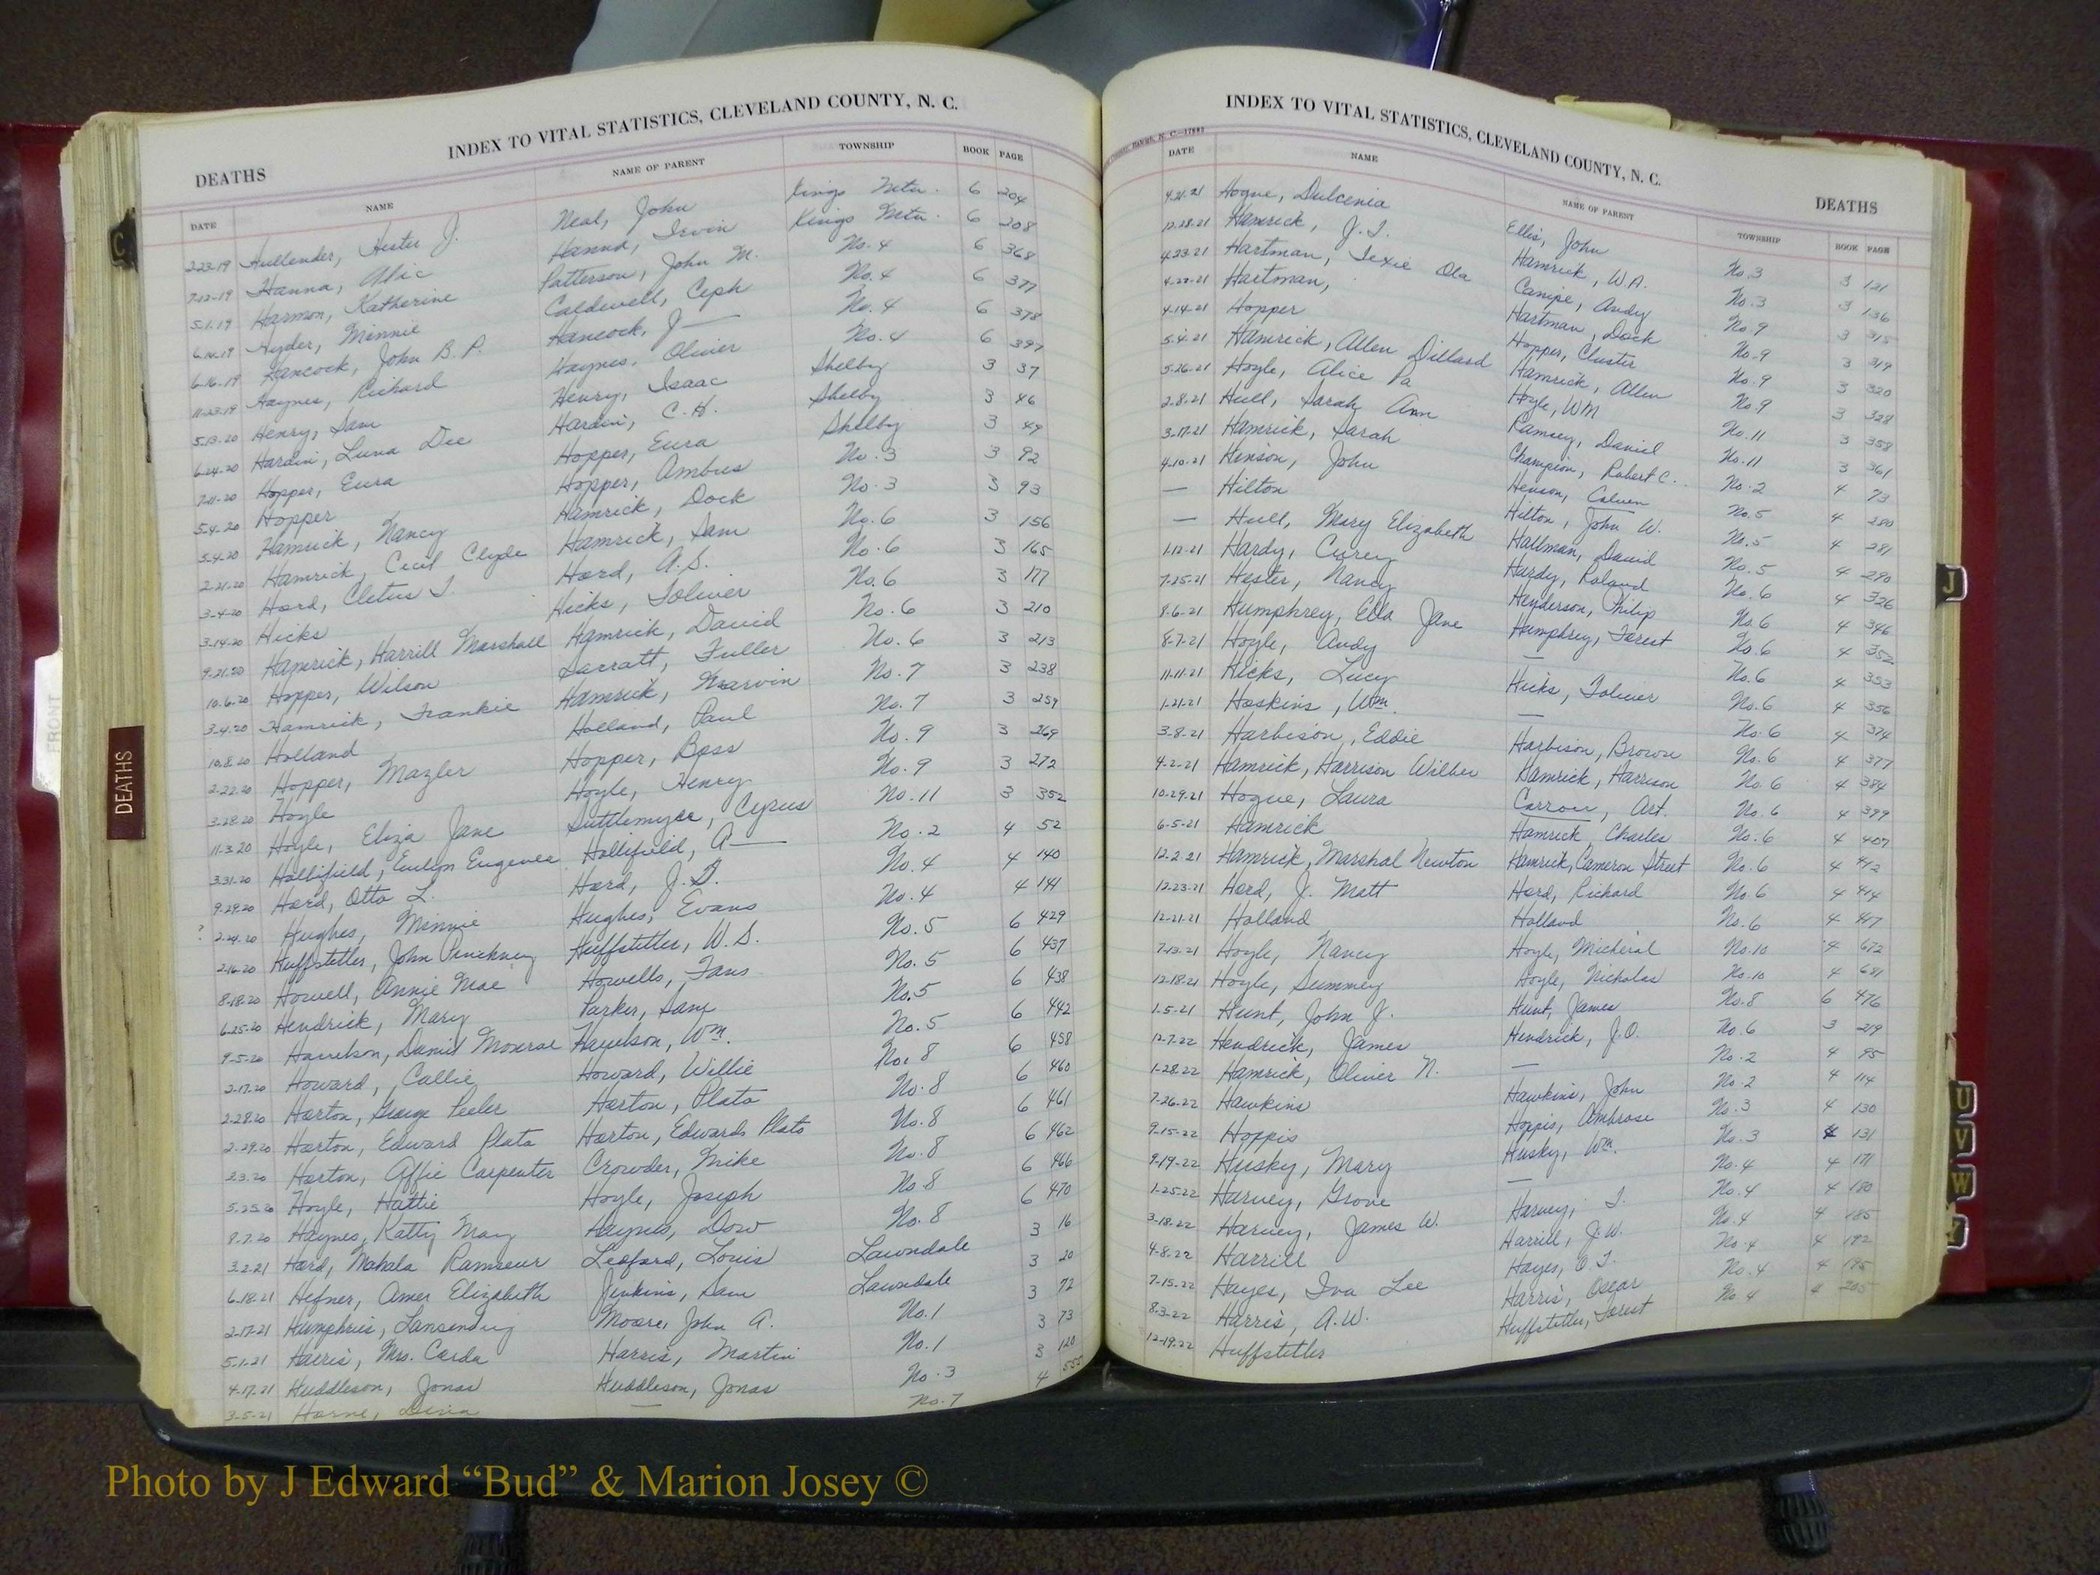 INDEX TO VITAL STATISTICS, CLEVELAND COUNTY, N. C.
DEATHS
DATE NAME NAME OF PARENT TOWNSHIP BOOK PAGE
2-23-19 Hullender, Hester J. Neal, John Kings Mtn. 6 204
7-12-19 Hanna, Alic Hanna, Irvin Kings Mtn. 6 208
5-1-19 Harmon, Katherine Patterson, John M. No. 4 6 368
6-14-19 Hyder, Minnie Caldwell, Ceph No. 4 6 377
6-16-19 Hancock, John B. P. Hancock, J— No. 4 6 378
11-23-19 Haynes, Richard Haynes, Olivier No. 4 6 397
5-13-20 Henry, Sam Henry, Isaac Shelby 3 37
6-24-20 Hardin, Luna Dee Hardin, C. H. Shelby 3 46
7-21-20 Hopper, Eura Hopper, Eura Shelby 3 49
5-4-20 Hopper Hopper, Ambus No. 3 3 92
5-4-20 Hamrick, Nancy Hamrick, Dock No. 3 3 93
2-21-20 Hamrick, Cecil Clyde Hamrick, Sam No. 6 3 156
3-4-20 Hord, Cletus T. Hord, A. S. No. 6 3 165
3-14-20 Hicks Hicks, Toliver No. 6 3 177
9-21-20 Hamrick, Harrill Marshall Hamrick, David No. 6 3 210
10-6-20 Hopper, Wilson Sarratt, Fuller No. 6 3 213
3-4-20 Hamrick, Frankie Hamrick, Marvin No. 7 3 238
10-8-20 Holland Holland, Paul No. 7 3 259
2-22-20 Hopper, Mazler Hopper, Boss No. 9 3 269
3-28-20 Hoyle Hoyle, Henry No. 9 3 272
11-3-20 Hoyle, Eliza Jane Suttlemyre, Cyrus No. 11 3 352
3-31-20 Hollifield, Evelyn Eugenea Hollifield, A— No. 2 4 52
9-29-20 Hord, Otto L. Hord, J. D. No. 4 4 140
? 2-24-20 Hughes, Minnie Hughes, Evans No. 4 4 141
2-16-20 Huffstetler, John Pinckney Huffstetler, W. S. No. 5 6 429
8-18-20 Howell, Annie Mae Howells, Fans No. 5 6 437
6-25-20 Hendrick, Mary Parker, Sam No. 5 6 438
9-5-20 Harrelson, Daniel Monroe Harrelson, Wm. No. 5 6 442
2-17-20 Howard, Callie Howard, Willie No. 8 6 458
2-28-20 Horton, George Peeler Horton, Plato No. 8 6 460
2-29-20 Horton, Edward Plato Horton, Edwards Plato No. 8 6 461
2-3-20 Horton, Affie Carpenter Crowder, Mike No. 8 6 462
5-25-20 Hoyle, Hattie Hoyle, Joseph No. 8 6 466
8-7-20 Haynes, Katty May Haynes, Dow No. 8 6 470
3-2-21 Hord, Mahala Ramseur Ledford, Louis Lawndale 3 16
6-18-21 Hefner, Amer Elizabeth Jenkins, Sam Lawndale 3 20
2-17-21 Humphries, Moore, John A. No. 1 3 72
5-1-21 Harris, Mrs. Carda Harris, Martin No. 1 3 73
4-17-21 Huddleson, Jonas Huddleson, Jonas No. 3 3 120
3-5-21 Horne, — No. 7 4 555
INDEX TO VITAL STATISTICS, CLEVELAND COUNTY, N. C.
DEATHS
DATE NAME NAME OF PARENT TOWNSHIP BOOK PAGE
4-21-21 Hogue, Dulcenia Ellis, John No. 3 3 121
12-28-21 Hamrick, J. T. Hamrick, W. A. No. 3 3 136
4-23-21 Hartman, Texie Ola Canipe, Andy No. 9 3 315
4-22-21 Hartman, Hartman, Dock No. 9 3 319
4-14-21 Hopper Hopper, Cluster No. 9 3 320
5-4-21 Hamrick, Allen Dillard Hamrick, Allen No. 9 3 328
5-26-21 Hoyle, Alice Pa Hoyle, WM No. 11 3 358
2-8-21 Hull, Sarah Ann Ramsey, Daniel No. 11 3 361
3-17-21 Hamrick, Sarah Champion, Robert C. No. 2 4 73
4-10-21 Henson, John Henson, Calven No. 5 4 280
— Hilton Hilton, John W. No. 5 4 281
— Hull, Mary Elizabeth Hallman, David No. 5 4 290
1-12-21 Hardy, Curey Hardy, Roland No. 6 4 326
7-25-21 Hester, Nancy Henderson, Philip No. 6 4 346
8-6-21 Humphrey, Ella Jane Humphrey, Forest No. 6 4 352
8-7-21 Hoyle, Andy — No. 6 4 353
11-11-21 Hicks, Lucy Hicks, Toliver No. 6 4 356
1-21-21 Hoskins, Wm. — No. 6 4 374
3-8-21 Harbison, Eddie Harbison, Brown No. 6 4 377
4-2-21 Hamrick, Harrison Wilber Hamrick, Harrison No. 6 4 384
10-29-21 Hogue, Laura Carroll, Art. No. 6 4 399
6-5-21 Hamrick Hamrick, Charles No. 6 4 407
12-2-21 Hamrick, Marshal Newton Hamrick, Cameron Street No. 6 4 412
12-23-21 Hord, J. Matt Hord, Richard No. 6 4 414
12-21-21 Holland Holland No. 6 4 417
7-13-21 Hoyle, Nancy Hoyle, Micheial No. 10 4 672
12-18-21 Hoyle, Summey Hoyle, Nicholas No. 10 4 681
1-5-21 Hunt, John J. Hunt, James No. 8 6 476
12-7-22 Hendrick, James Hendrick, J. O. No. 6 3 219
1-28-22 Hamrick, Oliver N. — No. 2 4 95
7-26-22 Hawkins Hawkins, John No. 2 4 114
9-15-22 Hoppis Hoppis, Ambrose No. 3 4 130
9-19-22 Husky, Mary Husky, Wm. No. 3 4 131
1-25-22 Harvey, Grove — No. 4 4 171
3-18-22 Harvey, James W. Harvey, T. No. 4 4 180
4-8-22 Harrill Harrill, J. W. No. 4 4 185
7-15-22 Hayes, Iva Lee Hayes, O. T. No. 4 4 192
8-3-22 Harris, A. W. Harris, Oscar No. 4 4 195
12-19-22 Huffstetler Huffstetler, Forest No. 4 4 205
C
FRONT
DEATHS
J
U
V
W
Photo by J Edward “Bud” & Marion Josey ©